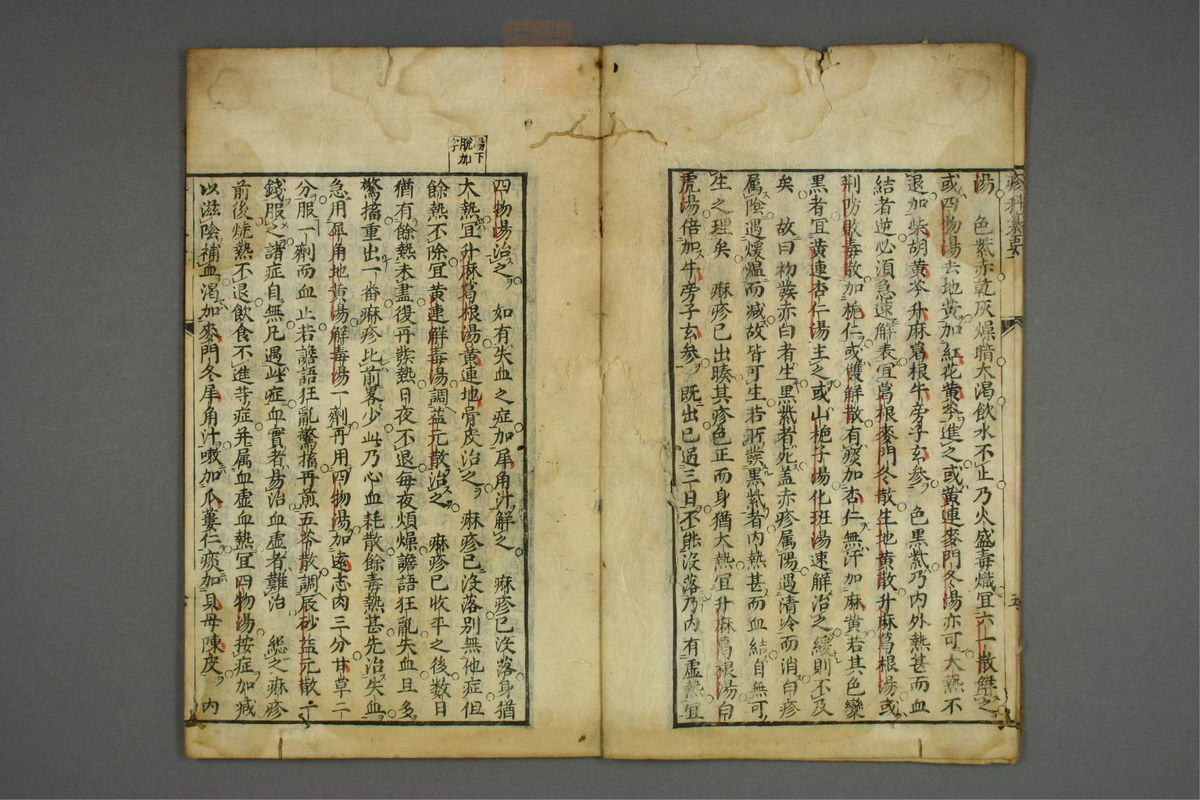 疹科纂要
湯　色紫赤乾灰燥暗大渴飲水不止乃火盛毒熾宜六一散解之
或四物湯去地黃加紅花黃芩進之或黃連麥門冬湯亦可大熱不
退加柴胡黃芩升麻葛根牛旁子玄參　色黑紫乃內外熱甚而血
結者逆必須急速解表宜葛根麥門冬散生地黃散升麻葛根湯或
荆防敗毒散加梔仁或雙解散有痰加杏仁無汗加麻黃若其色變
黑者宜黃連杏仁湯主之或山梔子湯化班湯速解治之緩則不及
矣　故曰初發赤白者生黑紫者死蓋赤疹属陽遇清冷而消白疹
属陰遇煖溫而減故皆可生若所發黑紫者內熱甚而血結自無可
生之理矣　麻疹已出暎其疹色正而身猶大熱宜升麻葛根湯白
虎湯倍加牛旁子玄參　既出已過三日不能沒落乃內有虛熱宜
五
湯下
脫加
字
四物湯治之　如有失血之症加犀角汁解之　麻疹已沒落身猶
大熱宜升麻葛根湯黃連地骨皮治之　麻疹已沒落別無他症但
餘熱不除宜黃連解毒湯調益元散治之　麻疹已收平之後數日
猶有餘熱未盡復再發熱日夜不退每夜煩燥譫語狂亂失血且多
驚搐重出一畨麻疹比前畧少此乃心血耗散餘毒熱甚先治失血
急用犀角地黃湯解毒湯一劑再用四物湯加遠志肉三分甘草二
分服一劑而血止若譫語狂亂驚搐再煎五苓散調辰砂益元散一
錢服之諸症自無凡遇此症血實者易治血虛者難治　總之麻疹
前後燒熱不退飲食不進等症并属血虛血熱宜四物湯按症加減
以滋陰補血渴加麥門冬犀角汁嗽加瓜蔞仁痰加貝母陳皮　內